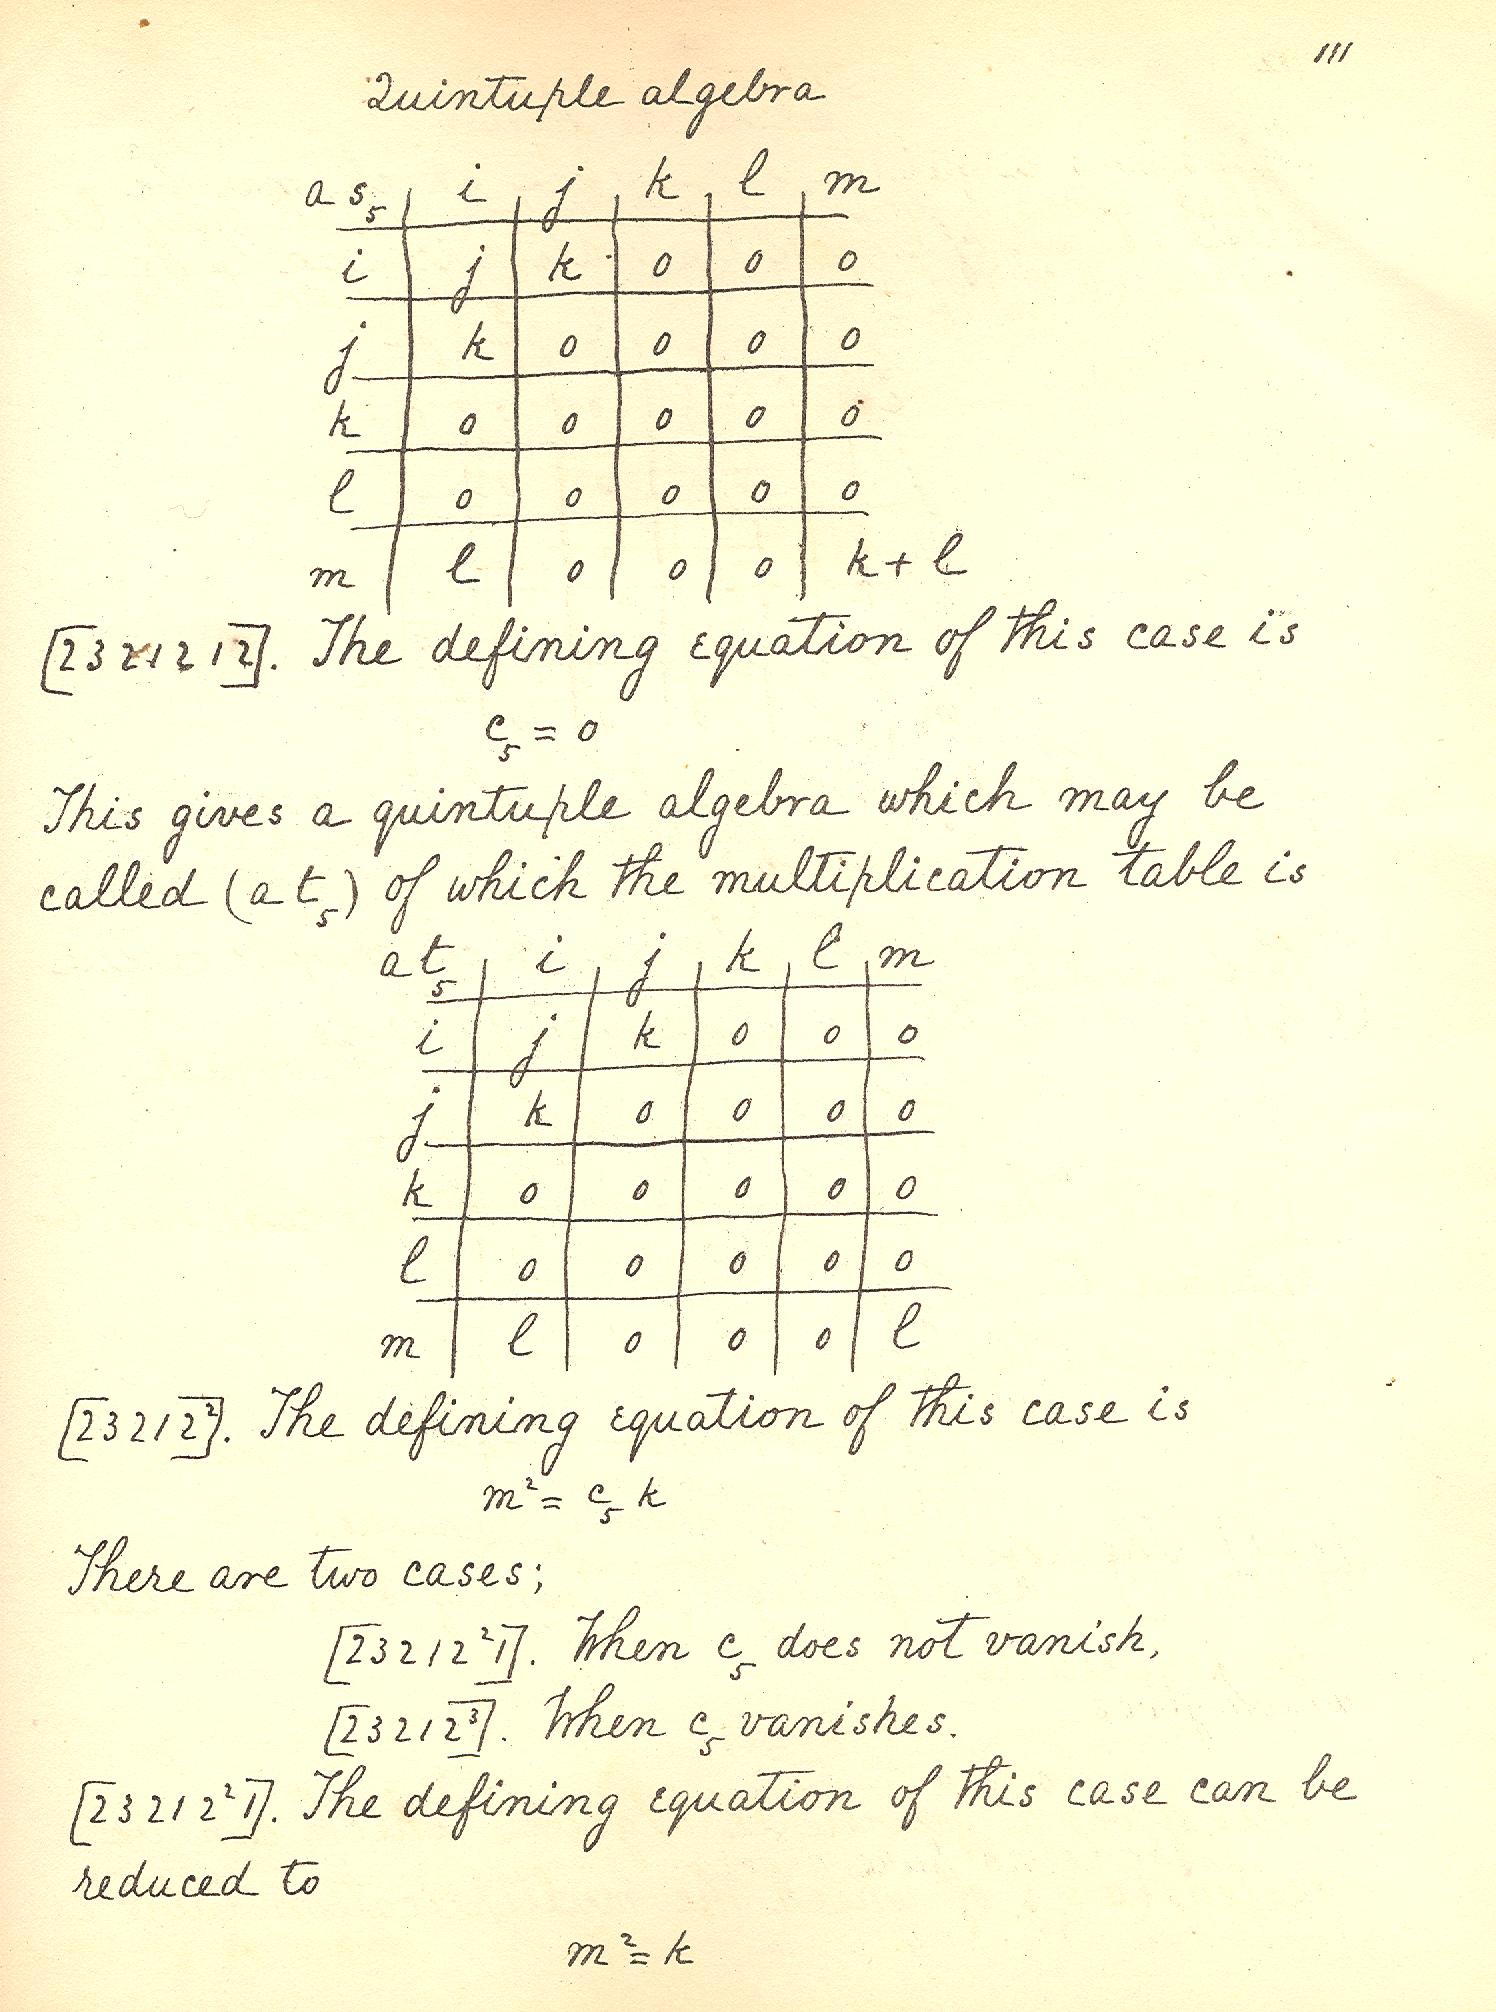 111
Quintuple algebra
as₅ | i | j | k | l | m
i | j | k | 0 | 0 | 0
j | k | 0 | 0 | 0 | 0
k | 0 | 0 | 0 | 0 | 0
l | 0 | 0 | 0 | 0 | 0
m | l | 0 | 0 | 0 | k + l
[2321212]. The defining equation of this case is
c₅ = 0
This gives a quintuple algebra which may be
called (at₅) of which the multiplication table is
at₅ | i | j | k | l | m
i | j | k | 0 | 0 | 0
j | k | 0 | 0 | 0 | 0
k | 0 | 0 | 0 | 0 | 0
l | 0 | 0 | 0 | 0 | 0
m | l | 0 | 0 | 0 | l
[23212²]. The defining equation of this case is
m² = c₅ k
There are two cases;
[23212²1]. When c₅ does not vanish,
[23212³]. When c₅ vanishes.
[23212²1]. The defining equation of this case can be
reduced to
m² = k